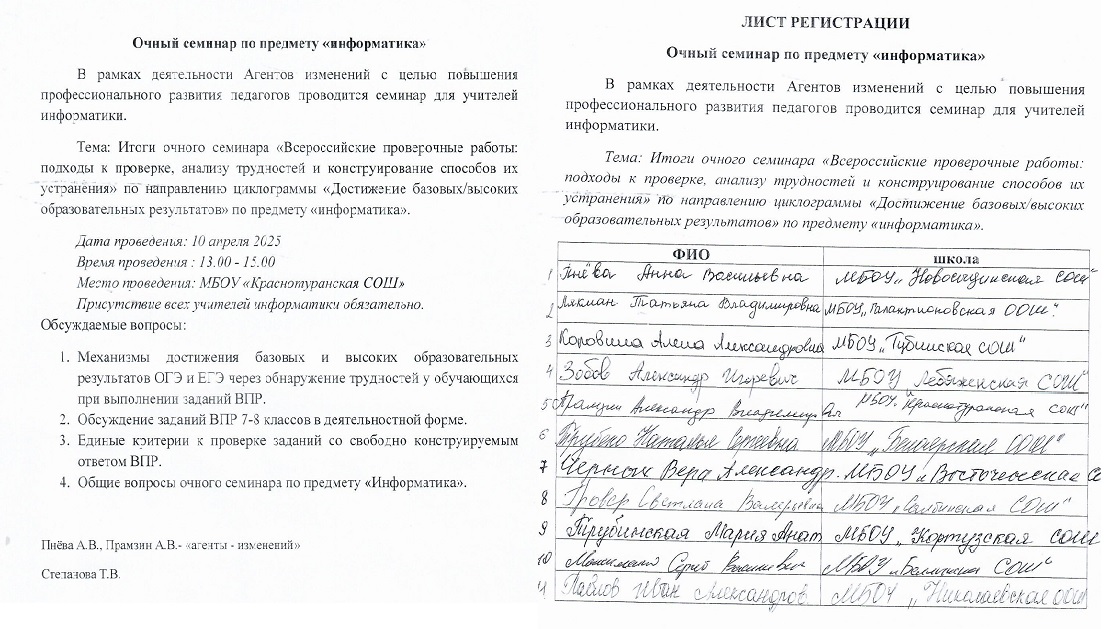 Очный семинар по предмету «информатика»
В рамках деятельности Агентов изменений с целью повышения
профессионального развития педагогов проводится семинар для учителей
информатики.
Тема: Итоги очного семинара «Всероссийские проверочные работы:
подходы к проверке, анализу трудностей и конструирование способов их
устранения» по направлению циклограммы «Достижение базовых/высоких
образовательных результатов» по предмету «информатика».
Дата проведения: 10 апреля 2025
Время проведения : 13.00 - 15.00
Место проведения: МБОУ «Краснотуранская СОШ»
Присутствие всех учителей информатики обязательно.
Обсуждаемые вопросы:
1. Механизмы достижения базовых и высоких образовательных
результатов ОГЭ и ЕГЭ через обнаружение трудностей у обучающихся
при выполнении заданий ВПР.
2. Обсуждение заданий ВПР 7-8 классов в деятельностной форме.
3. Единые критерии к проверке заданий со свободно конструируемым
ответом ВПР.
4. Общие вопросы очного семинара по предмету «Информатика».
Пнёва А.В., Прамзин А.В.- «агенты - изменений»
Степанова Т.В.
ЛИСТ РЕГИСТРАЦИИ
Очный семинар по предмету «информатика»
В рамках деятельности Агентов изменений с целью повышения
профессионального развития педагогов проводится семинар для учителей
информатики.
Тема: Итоги очного семинара «Всероссийские проверочные работы:
подходы к проверке, анализу трудностей и конструирование способов их
устранения» по направлению циклограммы «Достижение базовых/высоких
образовательных результатов» по предмету «информатика».
ФИО школа
1 Пнёва Анна Васильевна МБОУ „Новосыдинская СОШ"
2 Татьяна Владимировна МБОУ „Галактионовская ООШ".
3 Алена Александровна МБОУ „Тубинская СОШ"
4 Зобов Александр Игоревич МБОУ Лебяженская СОШ"
5 Александр МБОУ „Краснотуранская СОШ"
6 Наталья Сергеевна МБОУ
7 Черных Вера Александр. МБОУ
8 Светлана Валерьевна МБОУ „Салбинская СОШ"
9 Трубинская Мария Анат МБОУ „Кортузская СОШ
10 Сергей МБОУ СОШ"
11 Павлов Иван Александров МБОУ „Николаевская ООШ